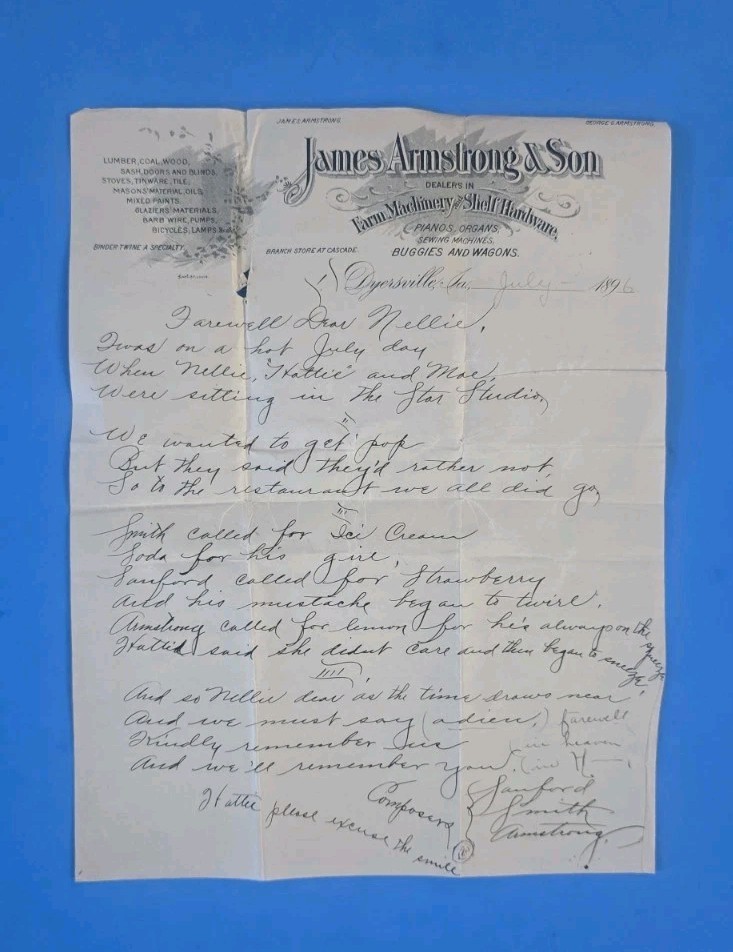 JAMES ARMSTRONG.
GEORGE C. ARMSTRONG.
James Armstrong & Son
DEALERS IN
Farm Machinery and Shelf Hardware,
PIANOS, ORGANS,
SEWING MACHINES,
BUGGIES AND WAGONS.
LUMBER, COAL, WOOD,
SASH, DOORS AND BLINDS,
STOVES, TINWARE, TILE,
MASONS' MATERIAL, OILS,
MIXED PAINTS,
GLAZIERS' MATERIALS,
BARB WIRE, PUMPS,
BICYCLES, LAMPS &
BINDER TWINE A SPECIALTY.
BRANCH STORE AT CASCADE.
Dyersville, Ia., July - 1896
I
Farewell Dear Nellie.
Twas on a hot July day
When Nellie, "Hattie" and Mae,
Were sitting in the Star Studio,
II
We wanted to get pop
But they said they'd rather not,
So to the restaurant we all did go,
III
Smith called for Ice Cream
Soda for his girl,
Sanford called for Strawberry
And his mustache began to twirl.
Armstrong called for limon for he's always on the squeeze
Hattie said she didnt care and then began to sneeze.
IIII
And so Nellie dear as the time draws near
And we must say (adieu,) farewell
Kindly remember us (in heaven
And we'll remember you. (in H—,
Composers { Sanford
Smith
Armstrong.
Hattie please excuse the smile